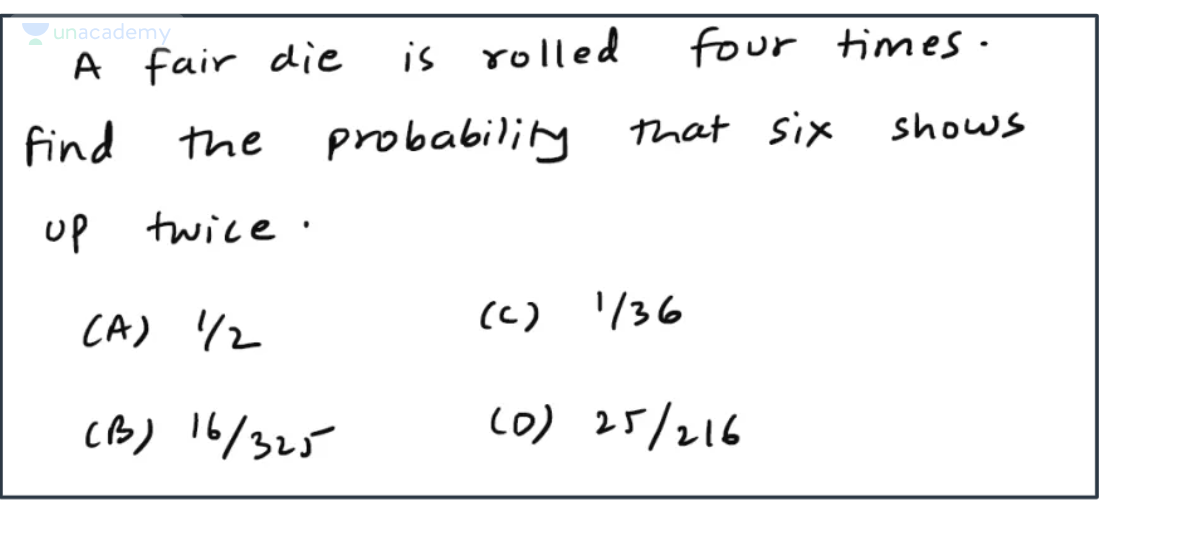 unacademy
A fair die is rolled four times.
find the probability that six shows
up twice.
(A) 1/2 (C) 1/36
(B) 16/325 (D) 25/216